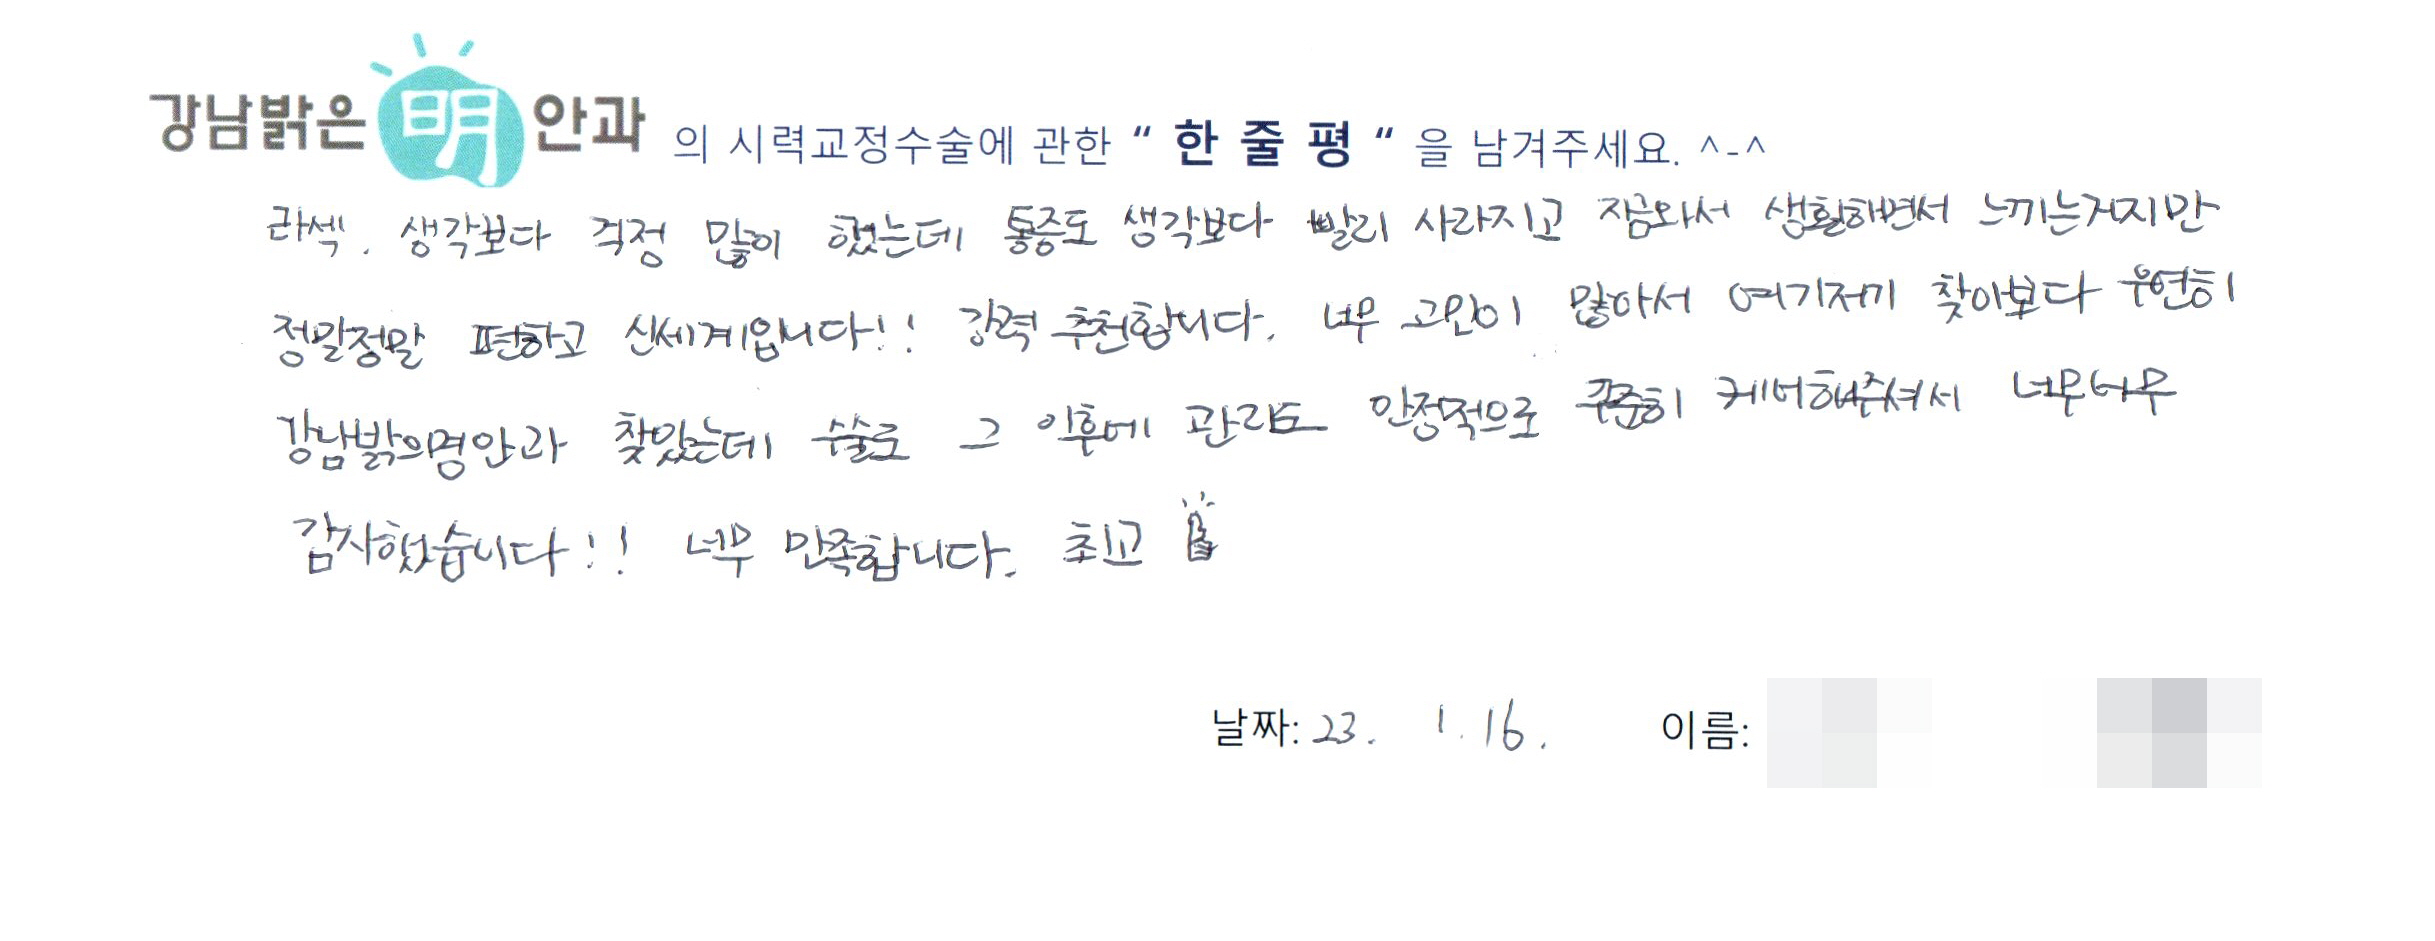 강남밝은明안과 의 시력교정수술에 관한 “ 한 줄 평 “ 을 남겨주세요. ^-^
라섹. 생각보다 걱정 많이 했는데 통증도 생각보다 빨리 사라지고 지금와서 생활하면서 느끼는거지만
정말정말 편하고 신세계입니다!! 강력 추천합니다. 너무 고민이 많아서 여기저기 찾아보다 우연히
강남밝의명안과 찾았는데 수술로 그 이후에 관리도 안정적으로 꾸준히 케어해주셔서 너무너무
감사했습니다!! 너무 만족합니다. 최고
날짜: 23. 1. 16. 이름: